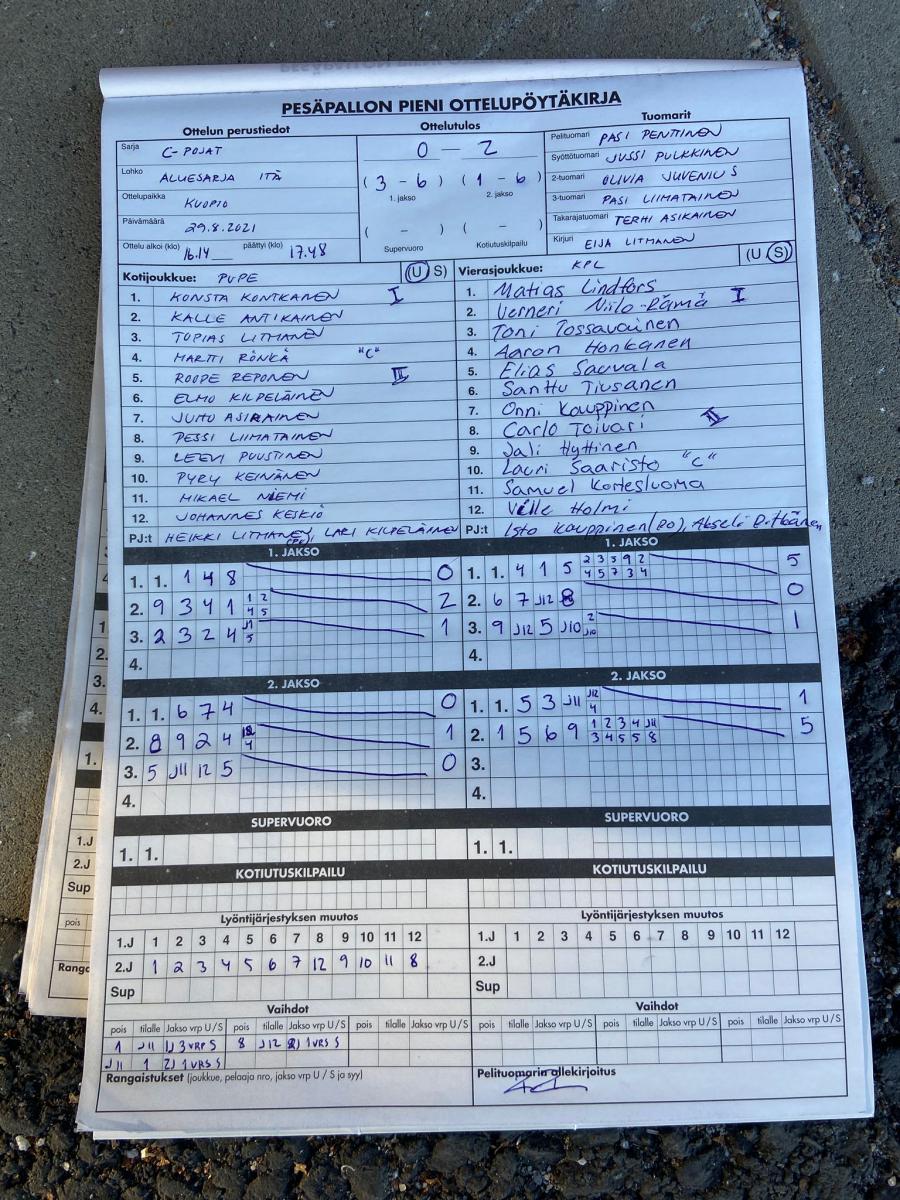 PESÄPALLON PIENI OTTELUPÖYTÄKIRJA
Ottelun perustiedot Ottelutulos Tuomarit
Sarja C-POJAT
Lohko ALUESARJA ITÄ
Ottelupaikka KUOPIO
Päivämäärä 29.8.2021
Ottelu alkoi (klo) 16.14 päättyi (klo) 17.48
0 - 2
(3 - 6) (1 - 6)
1. jakso 2. jakso
( - ) ( - )
Supervuoro Kotiutuskilpailu
Pelituomari PASI PENTTINEN
Syöttötuomari JUSSI PULKKINEN
2-tuomari OLIVIA JUVENIUS
3-tuomari PASI LIIMATAINEN
Takarajatuomari TERHI ASIKAINEN
Kirjuri EIJA LITMANEN
Kotijoukkue: PUPE (U S)
1. KONSTA KONTKANEN I
2. KALLE ANTIKAINEN
3. TOPIAS LITMANEN
4. MARTTI RÖNKÄ "C"
5. ROOPE REPONEN III
6. ELMO KILPELÄINEN
7. JUHO ASIKAINEN
8. PESSI LIIMATAINEN
9. LEEVI PUUSTINEN
10. PYRY KEINÄNEN
11. MIKAEL NIEMI
12. JOHANNES KESKIÖ
PJ:t HEIKKI LITMANEN, LARI KILPELÄINEN
Vierasjoukkue: KPL (U S)
1. Matias Lindfors
2. Verneri Niilo-Rämä I
3. Toni Tossavainen
4. Aaron Honkanen
5. Elias Sauvala
6. Santtu Tiusanen
7. Onni Kauppinen
8. Carlo Toivari II
9. Jali Hyttinen
10. Lauri Saaristo "C"
11. Samuel Kortesluoma
12. Ville Holmi
PJ:t Isto Kauppinen (PO), Akseli Pitkänen
1. JAKSO
1. 1. 1 4 8 0
2. 9 3 4 1 1 2 2
4 5
3. 2 3 2 4 J1 1
5
4.
2. JAKSO
1. 1. 6 7 4 0
2. 8 9 2 4 1
4
3. 5 J11 12 5 0
4.
SUPERVUORO
1. 1.
KOTIUTUSKILPAILU
1. JAKSO
1. 1. 4 1 5 2 3 5 9 2 5
4 5 7 3 4
2. 6 7 J12 8 0
3. 9 J12 5 J10 2 1
J10
4.
2. JAKSO
1. 1. 5 3 J11 J12 1
4
2. 1 5 6 9 1 2 3 4 J11 5
3 4 5 5 8
3.
4.
SUPERVUORO
1. 1.
KOTIUTUSKILPAILU
Lyöntijärjestyksen muutos
1.J 1 2 3 4 5 6 7 8 9 10 11 12
2.J 1 2 3 4 5 6 7 12 9 10 11 8
Sup
Vaihdot
pois tilalle Jakso vrp U/S pois tilalle Jakso vrp U/S pois tilalle Jakso vrp U/S
1 J11 1) 3 VRP S 8 J12 2) 1 VRS S
J11 1 2) 1 VRS S
Rangaistukset (joukkue, pelaaja nro, jakso vrp U / S ja syy)
Lyöntijärjestyksen muutos
1.J 1 2 3 4 5 6 7 8 9 10 11 12
2.J
Sup
Vaihdot
pois tilalle Jakso vrp U/S pois tilalle Jakso vrp U/S pois tilalle Jakso vrp U/S
Pelituomarin allekirjoitus
1.
2.
3.
4.
1.
1.J
2.J
Sup
pois
Ranga